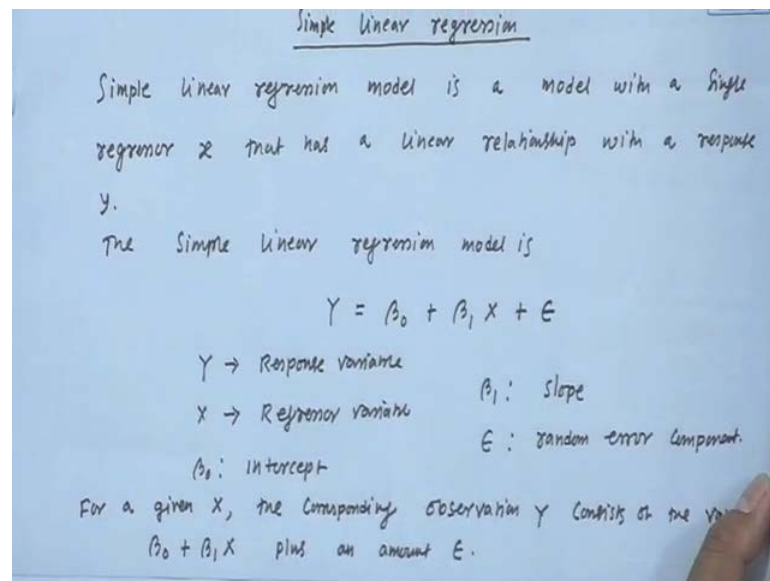 Simple linear regression
Simple linear regression model is a model with a single
regressor x that has a linear relationship with a response
y.
The simple linear regression model is
Y = β₀ + β₁ X + ε
Y → Response variable
X → Regressor variable
β₀ : intercept
β₁ : slope
ε : random error component.
For a given X, the corresponding observation Y consists of the
β₀ + β₁ X plus an amount ε.